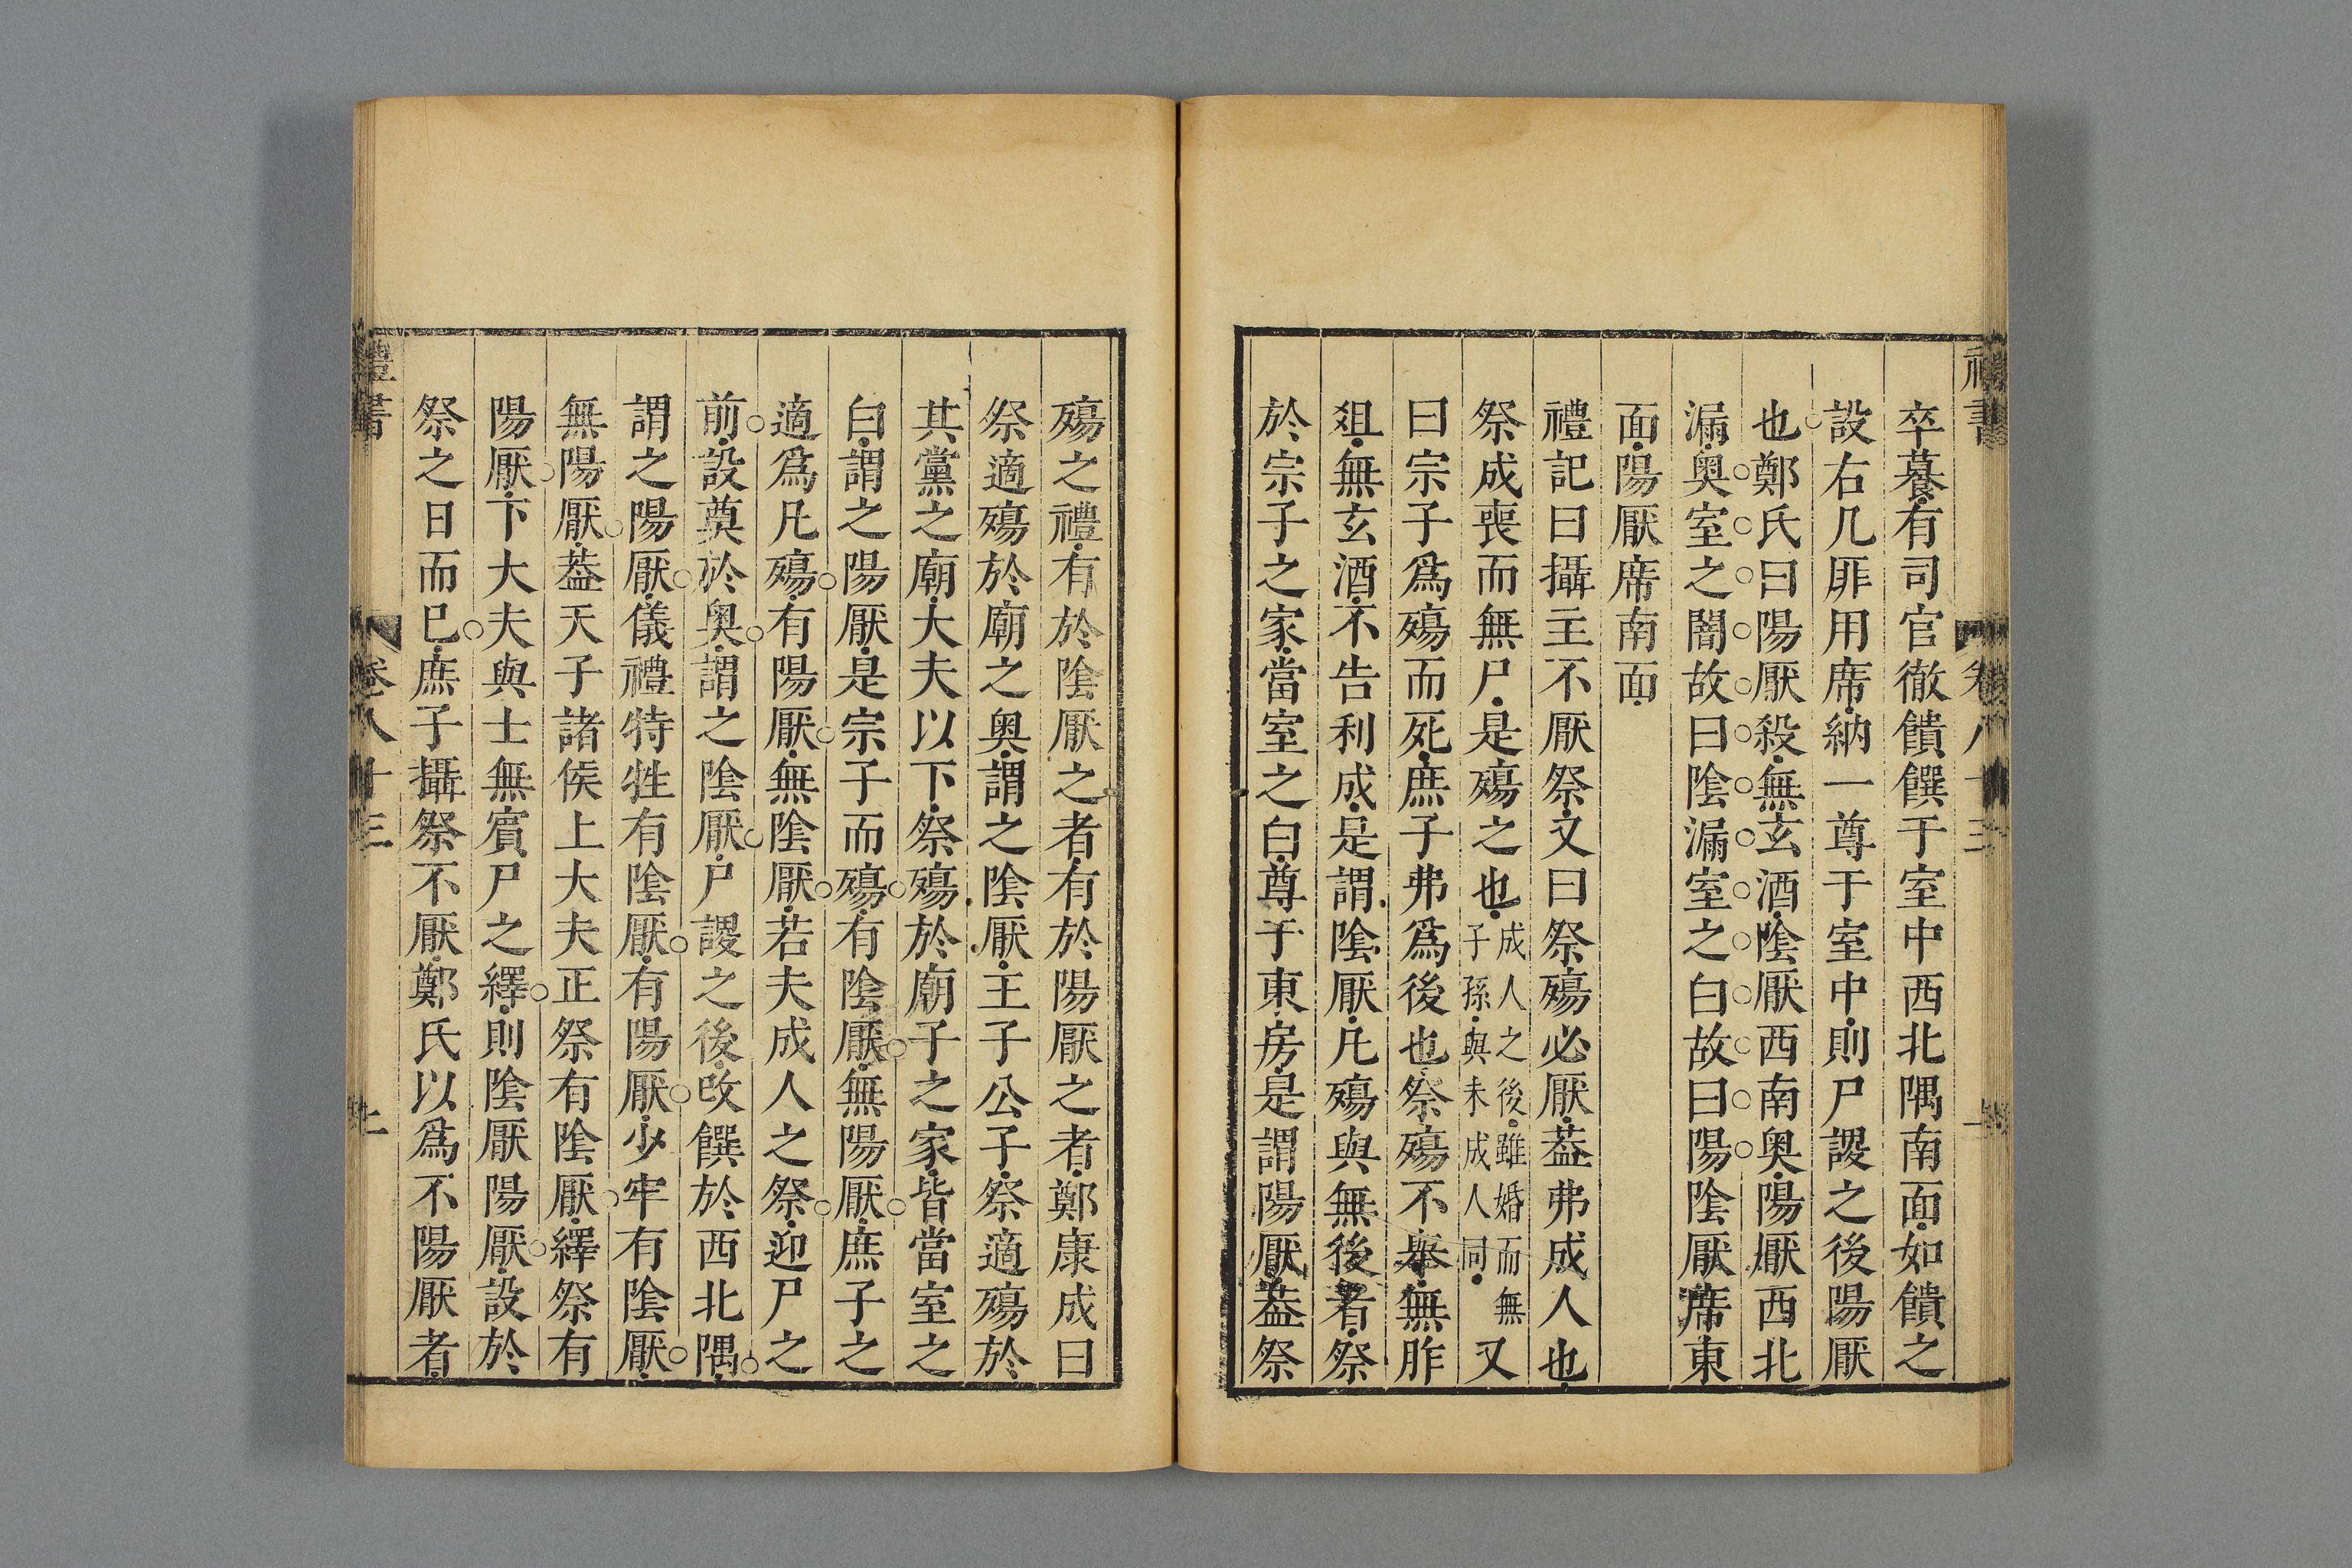 卒䭕有司官徹饋饌于室中西北隅南面如饋之
設右几厞用席納一尊于室中則尸謖之後陽厭
也鄭氏曰陽厭殺無玄酒陰厭西南奥陽厭西北
漏奥室之闇故曰陰漏室之白故曰陽陰厭席東
面陽厭席南面
禮記曰攝主不厭祭又曰祭殤必厭葢弗成人也
祭成喪而無尸是殤之也成人之後雖婚而無子孫與未成人同又
曰宗子爲殤而死庶子弗爲後也祭殤不舉無肵
俎無玄酒不告利成是謂陰厭凡殤與無後者祭
於宗子之家當室之白尊于東房是謂陽厭葢祭
殤之禮有於陰厭之者有於陽厭之者鄭康成曰
祭適殤於廟之奥謂之陰厭王子公子祭適殤於
其黨之廟大夫以下祭殤於廟子之家皆當室之
白謂之陽厭是宗子而殤有陰厭無陽厭庶子之
適爲凡殤有陽厭無陰厭若夫成人之祭迎尸之
前設奠於奥謂之陰厭尸謖之後改饌於西北隅
謂之陽厭儀禮特牲有陰厭有陽厭少牢有陰厭
無陽厭葢天子諸侯上大夫正祭有陰厭繹祭有
陽厭下大夫與士無賔尸之繹則陰厭陽厭設於
祭之日而已庶子攝祭不厭鄭氏以爲不陽厭者
禮書
卷八十三